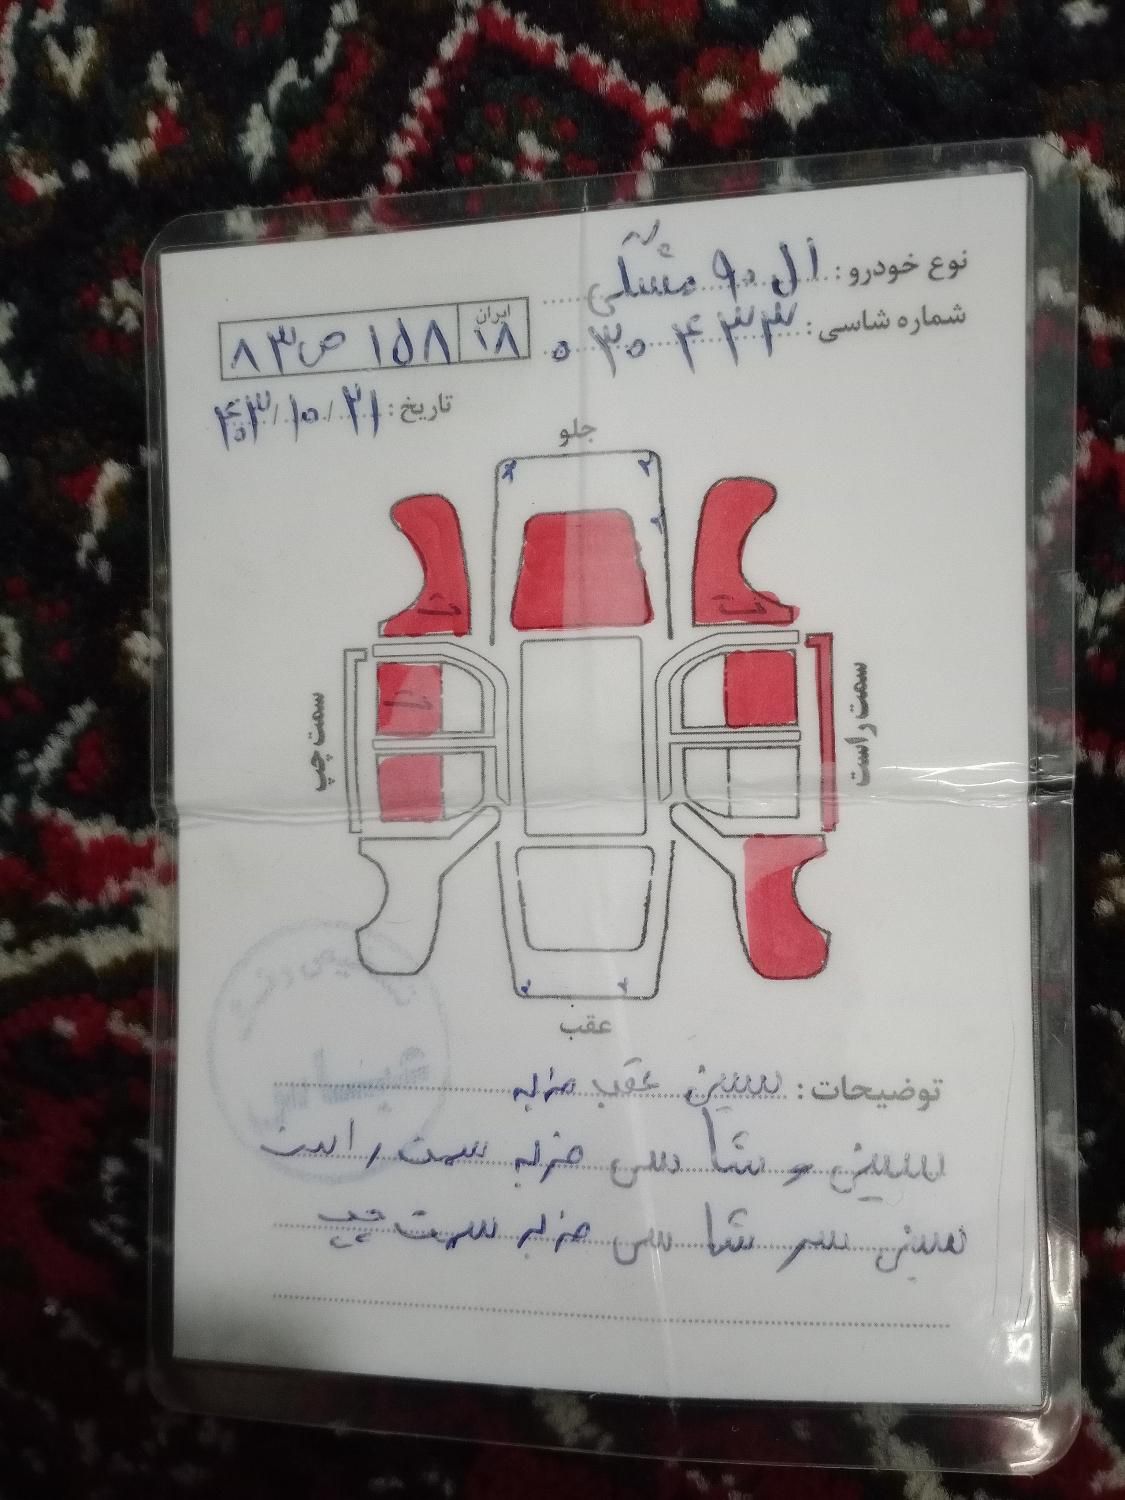 نوع خودرو: ال ۹۰ مشکی
شماره شاسی: ۰۳۰۴۳۳
ایران ۱۸ ۱۵۸ ص ۸۳
تاریخ: ۲۱ / ۱۰ / ۴۰۳
جلو
ت ت
ت
سمت چپ
سمت راست
عقب
توضیحات: سینی عقب ضربه
سینی و شاسی ضربه سمت راست
سینی سر شاسی ضربه سمت چپ